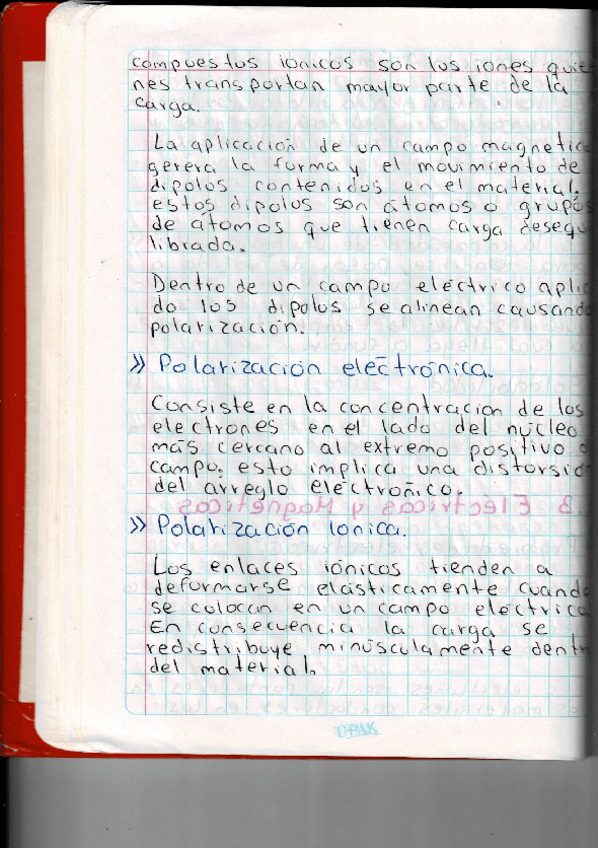 compuestos iónicos son los iones quie
nes transportan mayor parte de la
carga.
La aplicación de un campo magnetico
gerera la forma y el movimiento de
dipolos contenidos en el material.
estos dipolos son átomos o grupos
de átomos que tienen carga desequi
librada.
Dentro de un campo eléctrico aplica
do los dipolos se alinean causando
polarización.
» Polarización electrónica.
Consiste en la concentracion de los
electrones en el lado del núcleo
más cercano al extremo positivo d
campo, esto implica una distorsió
del arreglo electroñico.
» Polarización Ionica.
Los enlaces iónicos tienden a
deformarse elásticamente cuando
se colocan en un campo electrico
En consecuencia la carga se
redistribuye minúsculamente dentr
del material.